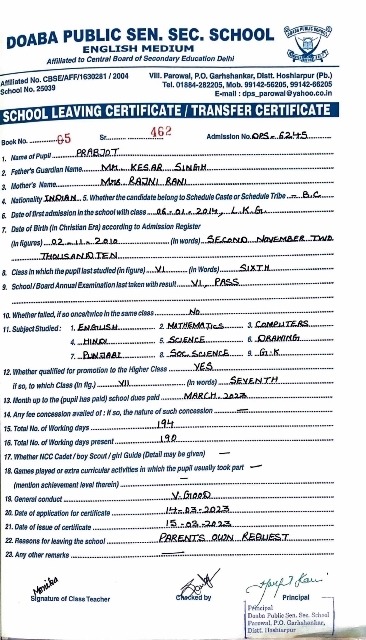 DOABA PUBLIC SEN. SEC. SCHOOL
ENGLISH MEDIUM
Affiliated to Central Board of Secondary Education Delhi
Affiliated No. CBSE/AFF/1630281 / 2004
School No. 25039
Vill. Parowal, P.O. Garhshankar, Distt. Hoshiarpur (Pb.)
Tel. 01884-282205, Mob. 99142-56205, 99142-66205
E-mail : dps_parowal@yahoo.co.in
SCHOOL LEAVING CERTIFICATE / TRANSFER CERTIFICATE
Book No. 65 Sr. 462 Admission No. DPS-6245
1. Name of Pupil PRABJOT
2. Father's Guardian Name MR. KESAR SINGH
3. Mother's Name MRS RAJNI RANI
4. Nationality INDIAN 5. Whether the candidate belong to Schedule Caste or Schedule Tribe B.C
6. Date of first admission in the school with class 06-01-2014, L.K.G.
7. Date of Birth (in Christian Era) according to Admission Register
(In figures) 02-11-2010 (In words) SECOND NOVEMBER TWO
THOUSAND TEN
8. Class in which the pupil last studied (in figure) VI (in Words) SIXTH
9. School / Board Annual Examination last taken with result VI, PASS
10. Whether failed, if so once/twice in the same class NO
11. Subject Studied : 1. ENGLISH 2. MATHEMATICS 3. COMPUTERS
4. HINDI 5. SCIENCE 6. DRAWING
7. PUNJABI 8. SOC. SCIENCE 9. G.K
12. Whether qualified for promotion to the Higher Class YES
if so, to which Class (in fig.) VII (in words) SEVENTH
13. Month up to the (pupil has paid) school dues paid MARCH, 2023
14. Any fee concession availed of : It so, the nature of such concession —
15. Total No. of Working days 194
16. Total No. of Working days present 190
17. Whether NCC Cadet / boy Scout / girl Guide (Detail may be given) —
18. Games played or extra curricular activities in which the pupil usually took part —
(mention achievement level therein) —
19. General conduct V. GOOD
20. Date of application for certificate 14-03-2023
21. Date of issue of certificate 15-03-2023
22. Reasons for leaving the school PARENTS OWN REQUEST
23. Any other remarks —
Monika
Signature of Class Teacher Checked by Principal
Principal
Doaba Public Sen. Sec. School
Parowal, P.O. Garhshankar,
Distt. Hoshiarpur